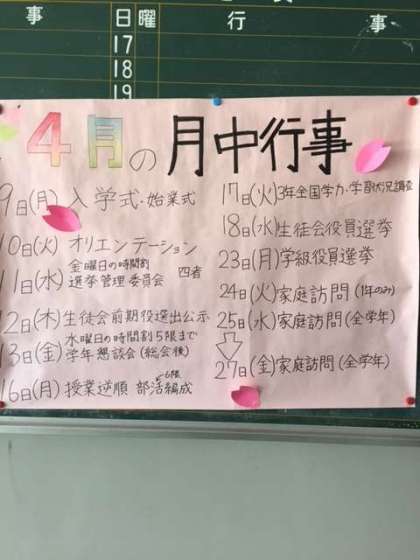 事 日 曜 行 事
17
18
19
4月の月中行事
9日(月)入学式・始業式
10日(火)オリエンテーション
金曜日の時間割
11日(水)選挙管理委員会 四者
12日(木)生徒会前期役選出公示
水曜日の時間割5限まで
13日(金)学年懇談会(総会後)
16日(月)授業逆順 部活編成
6限
17日(火)3年全国学力・学習状況調査
18日(水)生徒会役員選挙
23日(月)学級役員選挙
24日(火)家庭訪問(1年のみ)
25日(水)家庭訪問(全学年)
27日(金)家庭訪問(全学年)